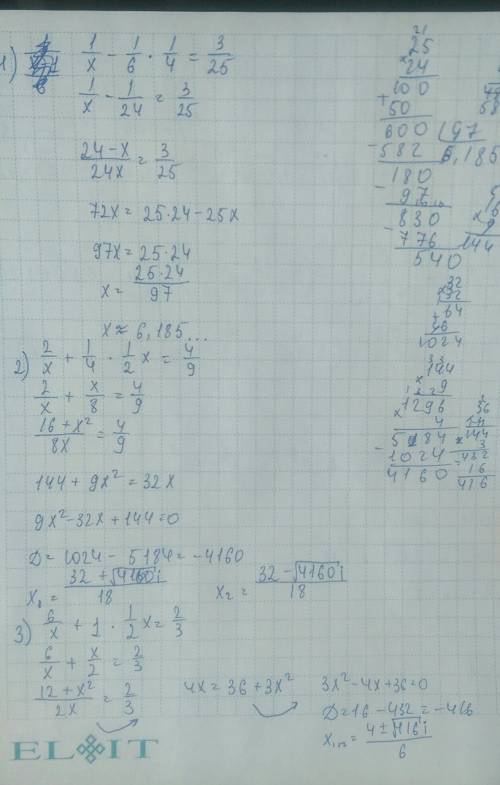 1) 1/x - 1/6 · 1/4 = 3/25
1/x - 1/24 = 3/25
(24-x)/(24x) = 3/25
72x = 25·24 - 25x
97x = 25·24
x = (25·24)/97
x ≈ 6,185...
2) 2/x + 1/4 · 1/2 x = 4/9
2/x + x/8 = 4/9
(16+x²)/(8x) = 4/9
144 + 9x² = 32x
9x² - 32x + 144 = 0
D = 1024 - 5184 = -4160
x₁ = (32 + √4160 i)/18   x₂ = (32 - √4160 i)/18
3) 6/x + 1 · 1/2 x = 2/3
6/x + x/2 = 2/3
(12+x²)/(2x) = 2/3   4x = 36 + 3x²   3x² - 4x + 36 = 0
D = 16 - 432 = -416
x₁,₂ = (4 ± √416 i)/6
25
×24
100
+50
600 | 97
-582   6,185
180
-97
830
-776
540
32
×32
64
96
1024
144
×9
1296
×4
5184
-1024
4160
36
144
×3
432
-16
416
16
×9
144
ELIT